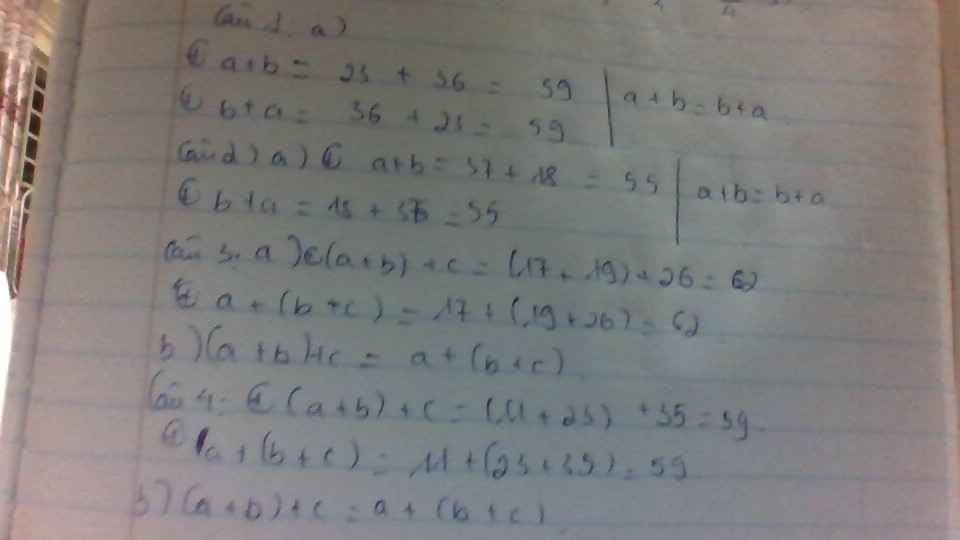 Câu 1. a)
a+b = 23 + 36 = 59 | a+b = b+a
b+a = 36 + 23 = 59
Câu 2) a) a+b = 37 + 18 = 55 | a+b = b+a
b+a = 18 + 37 = 55
Câu 3. a) (a+b) + c = (17 + 19) + 26 = 62
a + (b+c) = 17 + (19+26) = 62
b) (a+b)+c = a + (b+c)
Câu 4. (a+b) + c = (11 + 23) + 35 = 59
a + (b+c) = 11 + (23+35) = 59
b) (a+b)+c = a + (b+c)